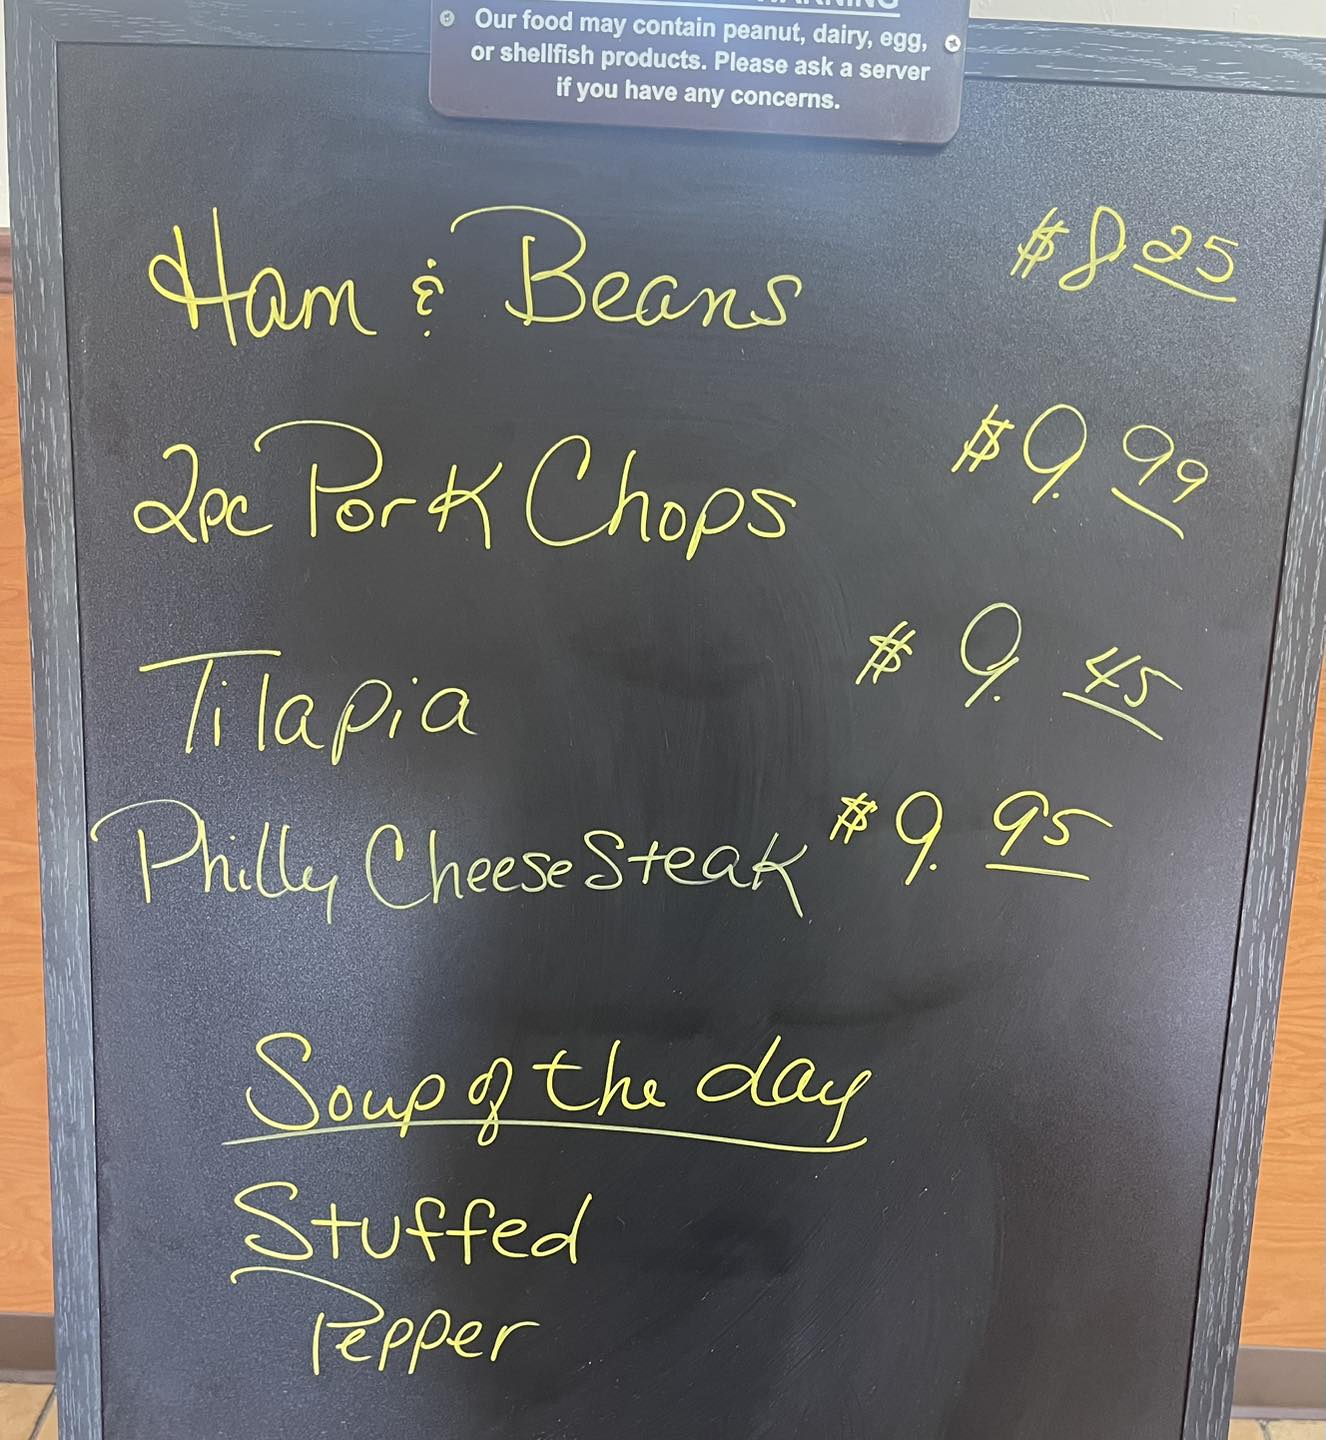 WARNING
Our food may contain peanut, dairy, egg,
or shellfish products. Please ask a server
if you have any concerns.
Ham & Beans $8 25
2pc Pork Chops $9. 99
Tilapia $9. 45
Philly Cheese Steak $9. 95
Soup of the day
Stuffed
Pepper